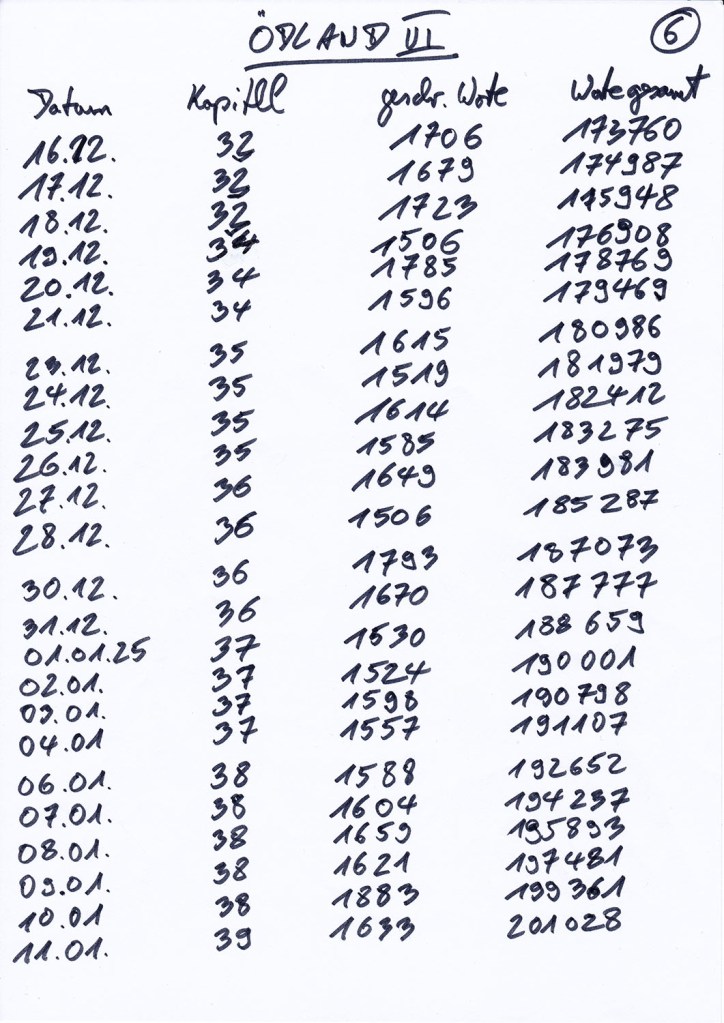 ÖDLAND VI 6
Datum Kapitel geschr. Worte Worte gesamt
16.12. 32 1706 173760
17.12. 32 1679 174987
18.12. 32 1723 175948
19.12. 34 1506 176908
20.12. 34 1785 178769
21.12. 34 1596 179469
23.12. 35 1615 180986
24.12. 35 1519 181979
25.12. 35 1614 182412
26.12. 35 1585 183275
27.12. 36 1649 183981
28.12. 36 1506 185287
30.12. 36 1793 187073
31.12. 36 1670 187777
01.01.25 37 1530 188659
02.01. 37 1524 190001
03.01. 37 1598 190798
04.01 37 1557 191107
06.01. 38 1588 192652
07.01. 38 1604 194237
08.01. 38 1659 195893
09.01. 38 1621 197481
10.01 38 1883 199361
11.01. 39 1633 201028